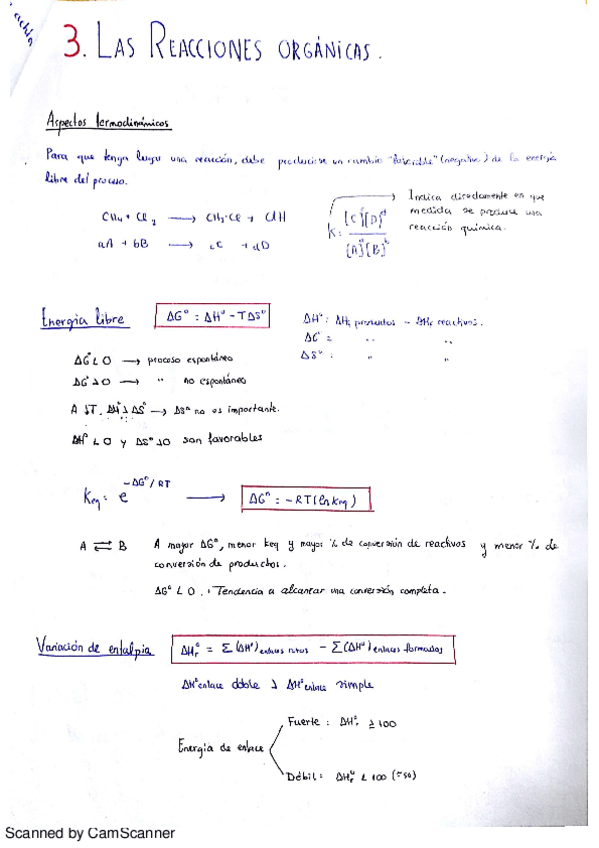 3. LAS REACCIONES ORGÁNICAS.
Aspectos termodinámicos
Para que tenga lugar una reacción, debe producirse un cambio "favorable" (negativo) de la energía
libre del proceso.
CH4 + Cl2 → CH3-Cl + ClH
aA + bB → cC + dD
K = [C]^c [D]^d / [A]^a [B]^b
Indica directamente en que
medida se produce una
reacción química.
Energía libre
ΔG° = ΔH° - TΔS°
ΔH° = ΔHf productos - ΔHf reactivos.
ΔG° = " "
ΔS° = " "
ΔG° < 0 → proceso espontáneo
ΔG° > 0 → " no espontáneo
A ↓T, ΔH° > ΔS° → ΔS° no es importante.
ΔH° < 0 y ΔS° > 0 son favorables
Keq = e^-ΔG°/RT → ΔG° = -RT(ln Keq)
A ⇌ B A mayor ΔG°, menor Keq y mayor % de conversión de reactivos y menor % de
conversión de productos.
ΔG° < 0 . Tendencia a alcanzar una conversión completa.
Variación de entalpia
ΔHr° = Σ(ΔH°)enlaces rotos - Σ(ΔH°)enlaces formados
ΔH°enlace doble > ΔH°enlace simple
Energía de enlace
Fuerte: ΔHr° ≥ 100
Débil: ΔHr° < 100 (≈50)
Scanned by CamScanner